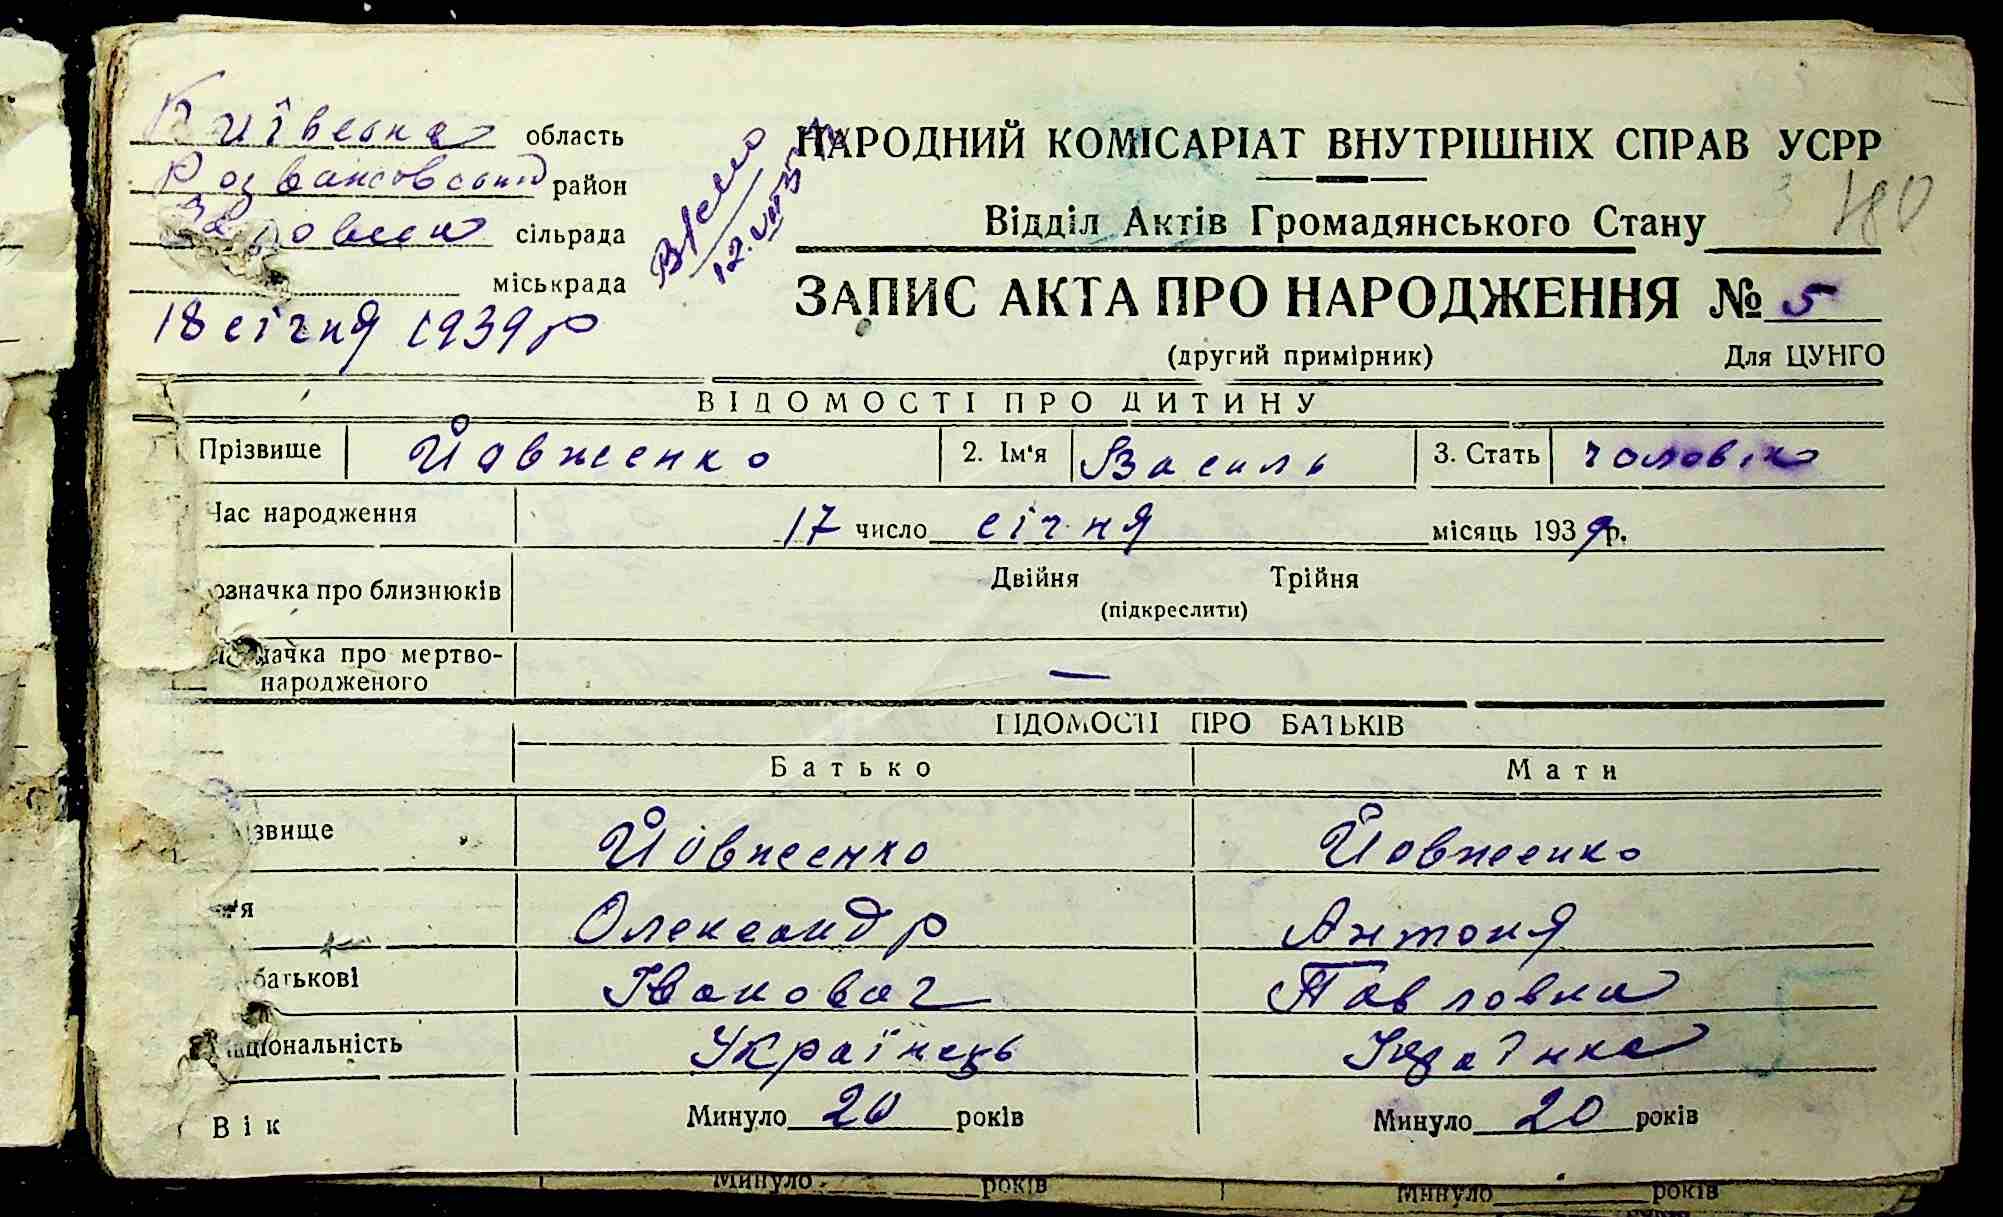 Київська область
Розважівський район
сільрада
міськрада
18 січня 1939 р
НАРОДНИЙ КОМІСАРІАТ ВНУТРІШНІХ СПРАВ УСРР
Відділ Актів Громадянського Стану
ЗАПИС АКТА ПРО НАРОДЖЕННЯ № 5
(другий примірник) Для ЦУНГО
ВІДОМОСТІ ПРО ДИТИНУ
Прізвище Йовженко 2. Ім'я Василь 3. Стать чоловіч
Час народження 17 число січня місяць 1939р.
означка про близнюків Двійня Трійня
(підкреслити)
значка про мертво-
народженого —
ВІДОМОСТІ ПРО БАТЬКІВ
Батько Мати
ізвище Йовженко Йовженко
м'я Олександр Антоня
батькові Іванович Павловна
Національність Українець Українка
Вік Минуло 20 років Минуло 20 років
Минуло років Минуло років